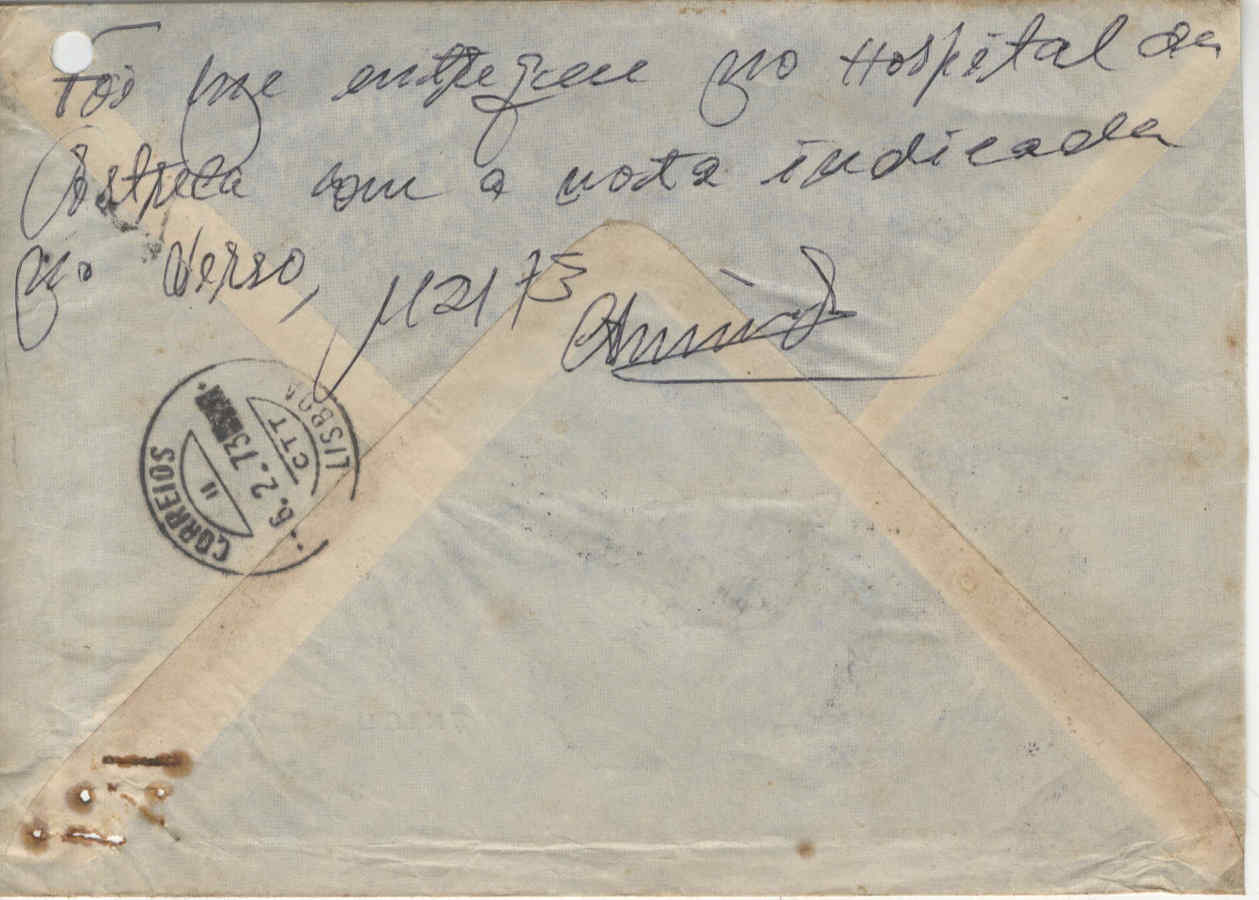 Foi me entregue no Hospital da
Estrela com a nota indicada
no verso,
CORREIOS
6.2.73
CTT
LISBOA